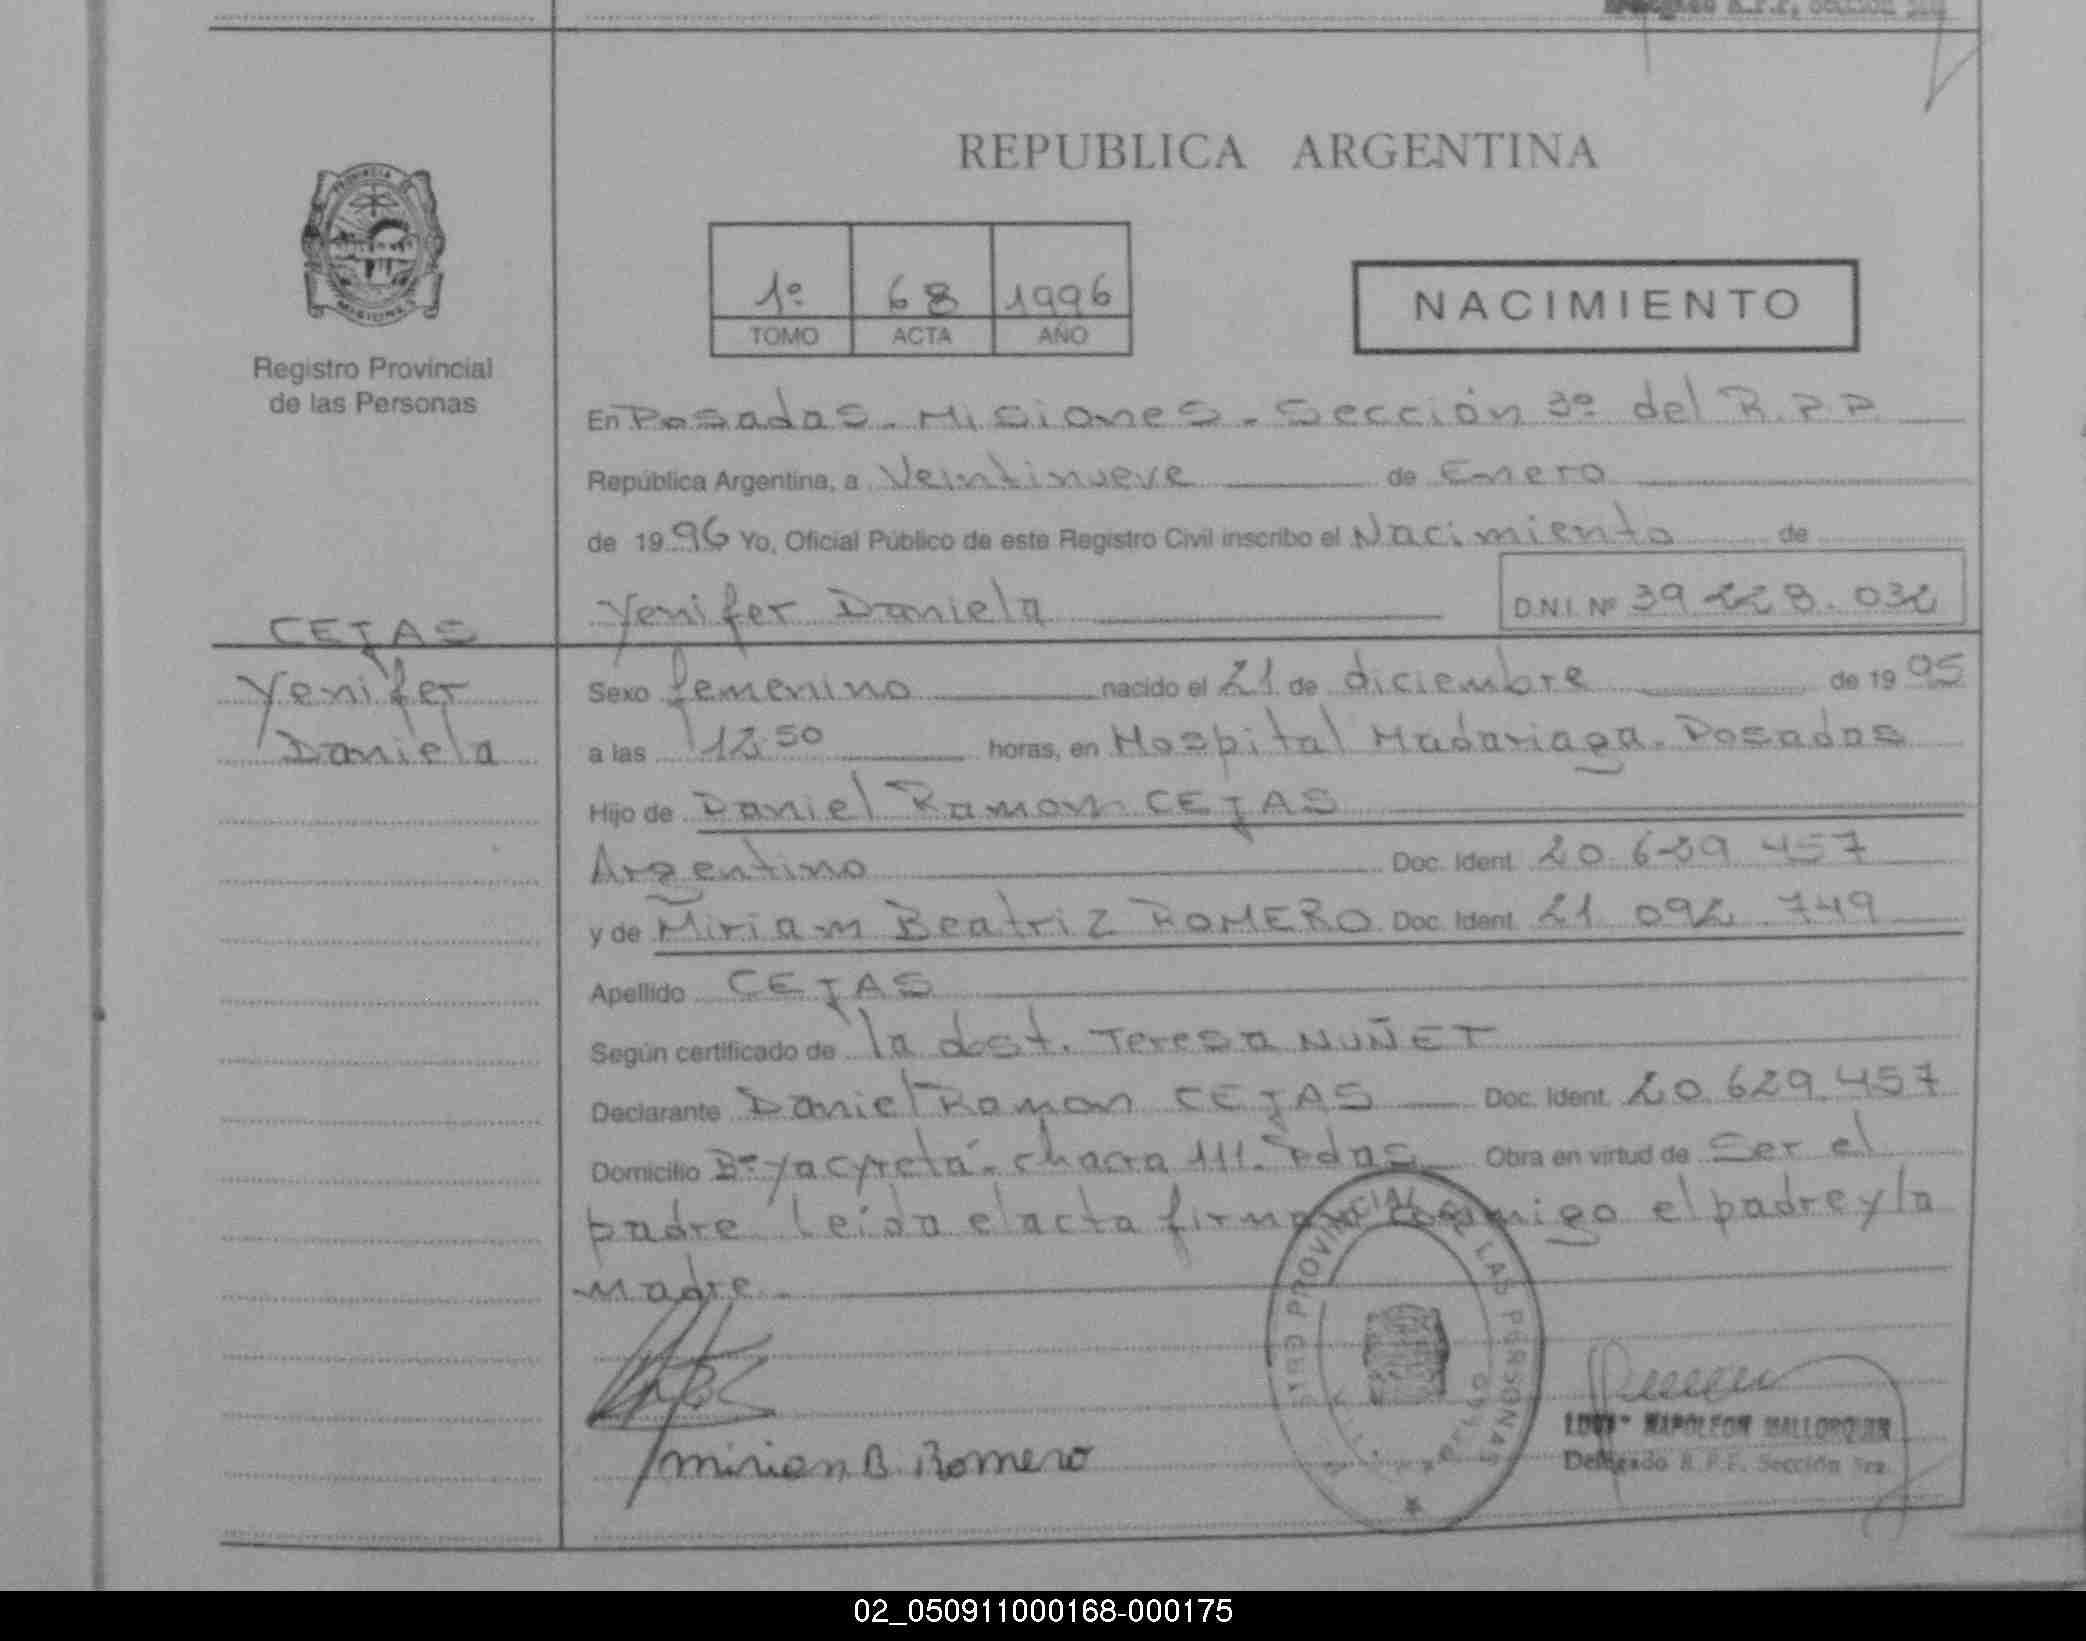 REPUBLICA ARGENTINA
PROVINCIA DE
MISIONES
Registro Provincial
de las Personas
1º 68 1996
TOMO ACTA AÑO
NACIMIENTO
En Posadas - Misiones - Sección 3º del R.P.P
República Argentina, a Veintinueve de Enero
de 1996 Yo, Oficial Público de este Registro Civil inscribo el Nacimiento de
Yenifer Daniela D.N.I. Nº 39 228.032
CEJAS
Yenifer
Daniela
Sexo femenino nacido el 21 de diciembre de 1995
a las 12 50 horas, en Hospital Madariaga - Posadas
Hijo de Daniel Ramon CEJAS
Argentino Doc. Ident. 20 629 457
y de Miriam Beatriz ROMERO Doc. Ident. 21 092 749
Apellido CEJAS
Según certificado de la obst. Teresa NUÑET
Declarante Daniel Ramon CEJAS Doc. Ident. 20 629.457
Domicilio Bº Yacyretá - chacra 111. Pdas Obra en virtud de Ser el
padre Leída el acta firman conmigo el padre y la
madre.
PROVINCIAL DE LAS PERSONAS
Mirian B. Romero
NAPOLEON MALLORQUIN
Delegado R.P.P. Sección 3ra
02_050911000168-000175